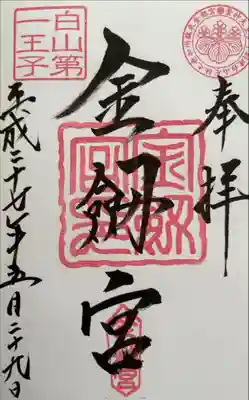 奉拝
白山第
一王子
金劔宮
平成二十七年五月二十九日